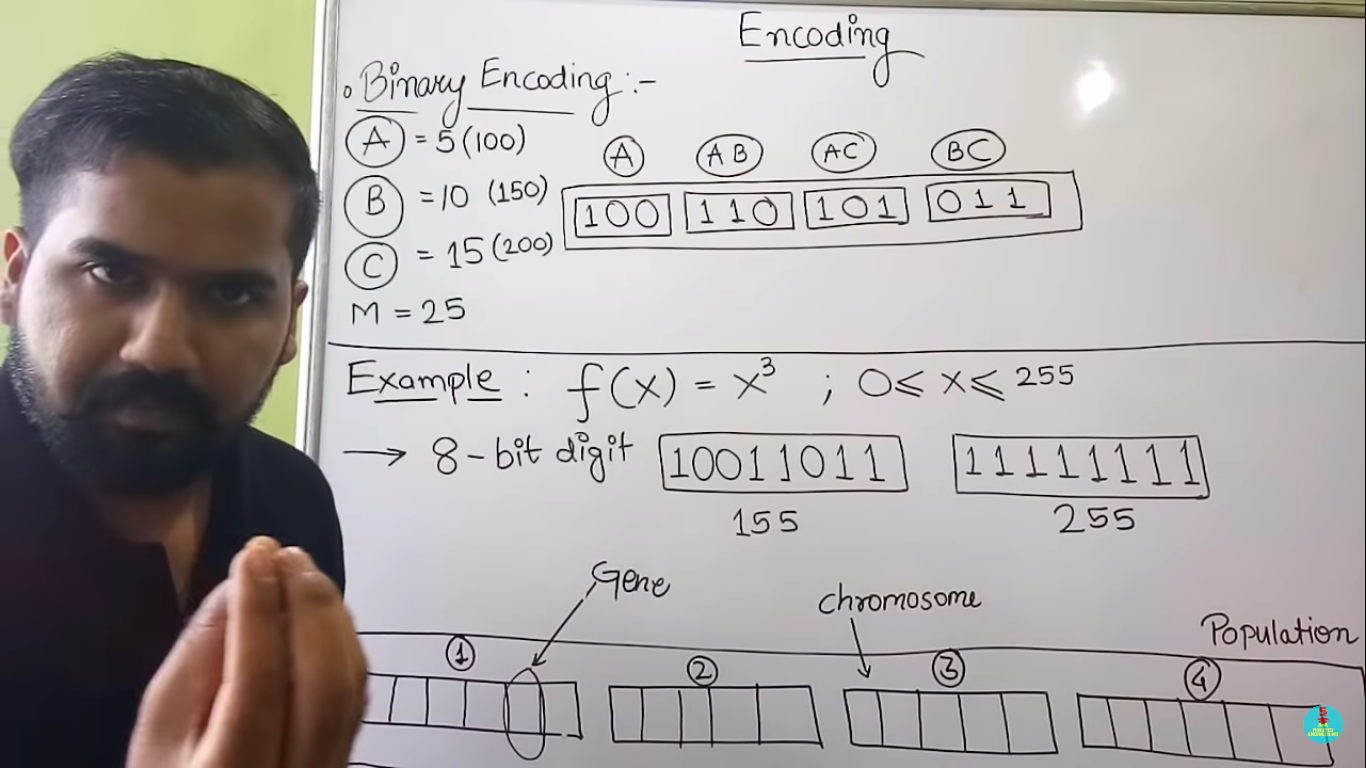 Encoding
Binary Encoding :-
A = 5 (100)
B = 10 (150)
C = 15 (200)
M = 25
A AB AC BC
100 110 101 011
Example : f(x) = x³ ; 0 ⩽ x ⩽ 255
→ 8-bit digit 10011011 11111111
155 255
Gene
chromosome
Population
1 2 3 4
5